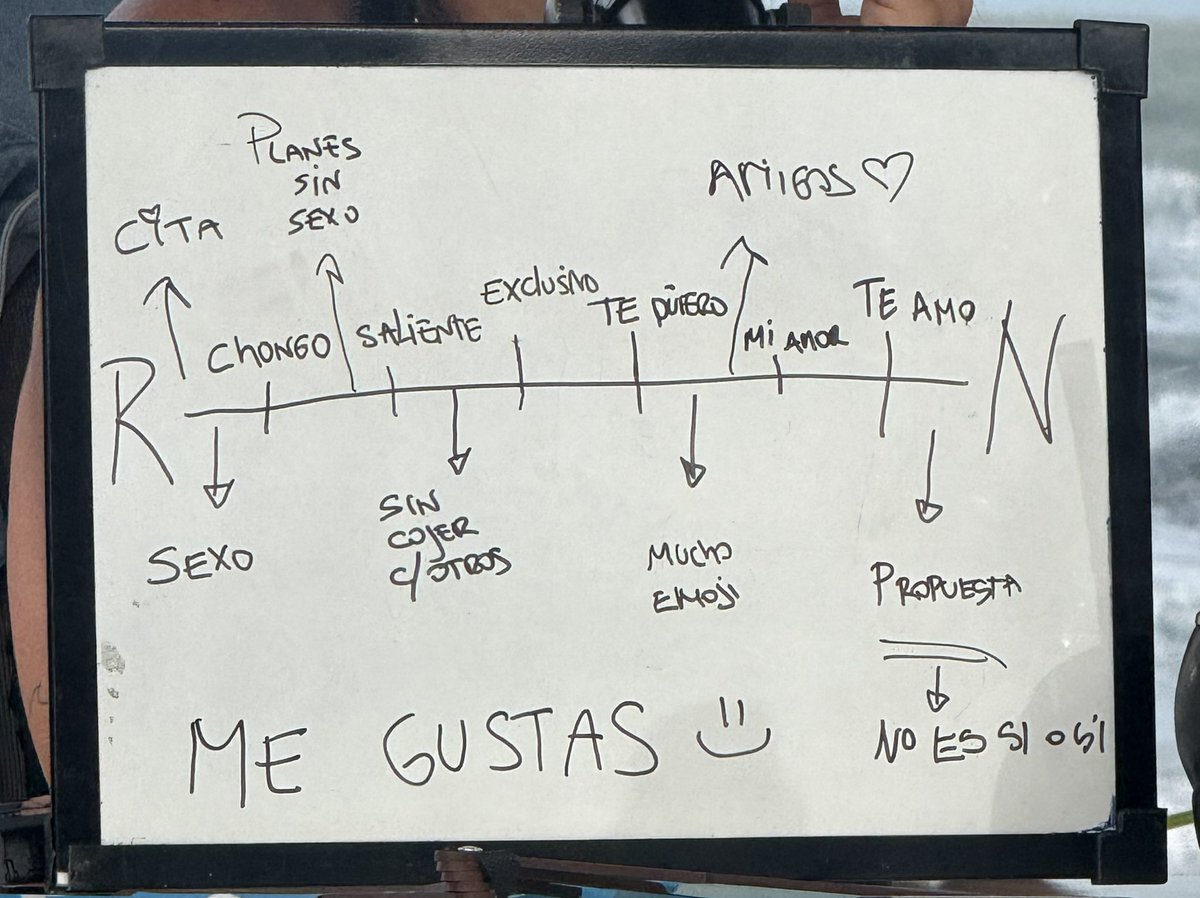 PLANES
SIN
SEXO
CITA
AMIGOS
CHONGO
SALIENTE
EXCLUSIVO
TE QUIERO
MI AMOR
TE AMO
R
N
SEXO
SIN
COJER
C/OTROS
MUCHO
EMOJI
PROPUESTA
NO ES SI O SI
ME GUSTAS